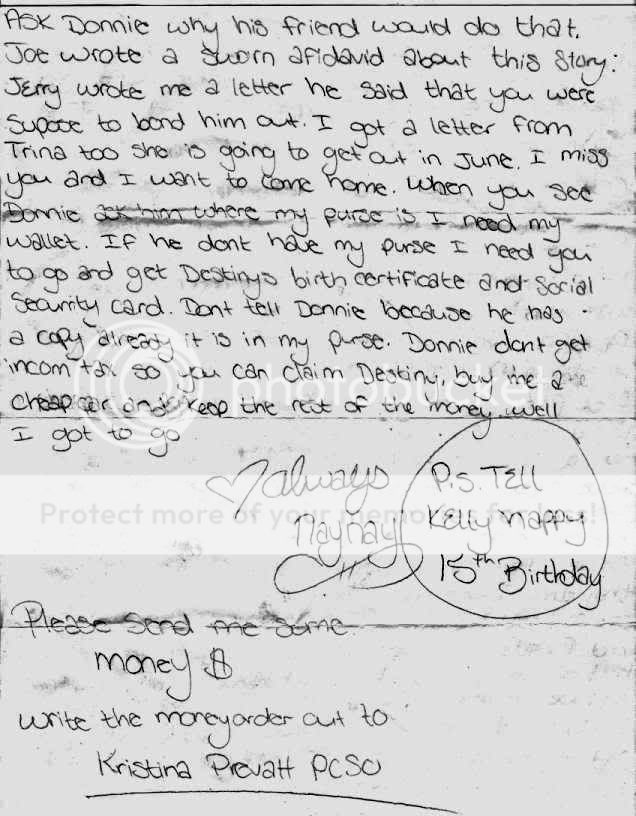 Ask Donnie why his friend would do that.
Joe wrote a sworn afidavid about this story:
Jerry wrote me a letter he said that you were
supose to bond him out. I got a letter from
Trina too she is going to get out in June. I miss
you and I want to come home. When you see
Donnie ask him where my purse is I need my
wallet. If he dont have my purse I need you
to go and get Destinys birth certificate and social
security card. Dont tell Donnie because he has
a copy already it is in my purse. Donnie dont get
incom tax so you can claim Destiny, buy me a
cheap car and keep the rest of the money. Well
I got to go
always
NayNay
P.S. Tell
Kelly Happy
15th Birthday
Please send me some
money $
write the moneyorder out to
Kristina Prevatt PCSO
photobucket
Protect more of your memories for less!